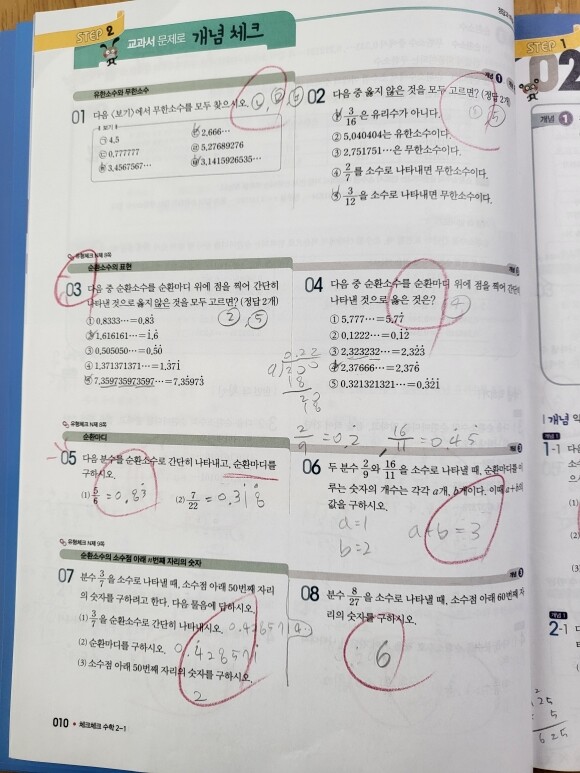 STEP 2
교과서 문제로 개념 체크
유한소수와 무한소수
01 다음 <보기>에서 무한소수를 모두 찾으시오.
보기
㉠ 4.5
㉡ 2.666⋯
㉢ 0.777777
㉣ 5.27689276
㉤ 3.4567567⋯
㉥ 3.1415926535⋯
개념 1
02 다음 중 옳지 않은 것을 모두 고르면? (정답 2개)
① 3/16은 유리수가 아니다.
② 5.040404는 유한소수이다.
③ 2.751751⋯은 무한소수이다.
④ 2/7를 소수로 나타내면 무한소수이다.
⑤ 3/12을 소수로 나타내면 무한소수이다.
① ⑤
유형체크 N제 8쪽
순환소수의 표현
03 다음 중 순환소수를 순환마디 위에 점을 찍어 간단히
나타낸 것으로 옳지 않은 것을 모두 고르면? (정답 2개)
②, ⑤
① 0.8333⋯=0.83̇
② 1.616161⋯=1̇.6̇
③ 0.505050⋯=0.5̇0̇
④ 1.371371371⋯=1.3̇71̇
⑤ 7.359735973597⋯=7.3̇5973̇
04 다음 중 순환소수를 순환마디 위에 점을 찍어 간단히
나타낸 것으로 옳은 것은?
④
① 5.777⋯=5.7̇7̇
② 0.1222⋯=0.1̇2̇
③ 2.323232⋯=2.3̇23̇
④ 2.37666⋯=2.376̇
⑤ 0.321321321⋯=0.3̇21̇
0.22
9 200
18
유형체크 N제 8쪽
순환마디
05 다음 분수를 순환소수로 간단히 나타내고, 순환마디를
구하시오.
(1) 5/6 = 0.83̇
(2) 7/22 = 0.31̇8̇
2/9 = 0.2̇
16/11 = 0.4̇5̇
06 두 분수 2/9와 16/11을 소수로 나타낼 때, 순환마디를 이
루는 숫자의 개수는 각각 a개, b개이다. 이때 a+b의
값을 구하시오.
a=1
b=2
a+b=3
유형체크 N제 9쪽
순환소수의 소수점 아래 n번째 자리의 숫자
07 분수 3/7을 소수로 나타낼 때, 소수점 아래 50번째 자리
의 숫자를 구하려고 한다. 다음 물음에 답하시오.
(1) 3/7을 순환소수로 간단히 나타내시오.
(2) 순환마디를 구하시오. 0.4̇28571̇
(3) 소수점 아래 50번째 자리의 숫자를 구하시오.
2
08 분수 8/27을 소수로 나타낼 때, 소수점 아래 60번째 자
리의 숫자를 구하시오.
6
010 • 체크체크 수학 2-1
STEP 1
02
개념 1
개념 익
개념 1
1-1
(1)
(2)
(3)
2-1
(1)
5
625